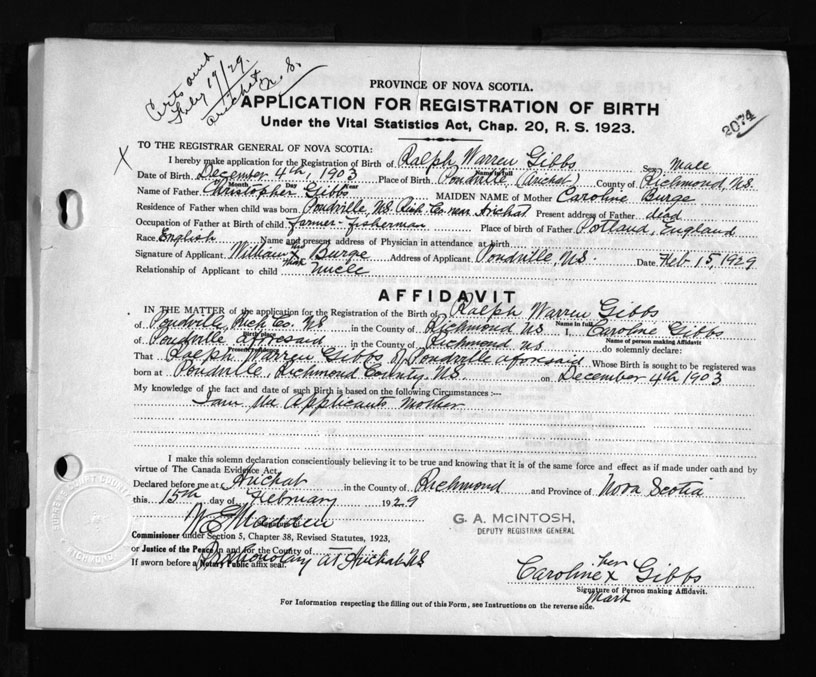 Certs and
July 19/29.
Arichat N.S.
PROVINCE OF NOVA SCOTIA.
APPLICATION FOR REGISTRATION OF BIRTH
Under the Vital Statistics Act, Chap. 20, R. S. 1923.
2074
X
TO THE REGISTRAR GENERAL OF NOVA SCOTIA:
I hereby make application for the Registration of Birth of Ralph Warren Gibbs Sex Male
Name in full
Date of Birth December 4th, 1903 Place of Birth Pondville (Arichat) County of Richmond, N.S.
Month Day Year
Name of Father Christopher Gibbs MAIDEN NAME of Mother Caroline Burge
Residence of Father when child was born Pondville, N.S. Rich. Co. near Arichat Present address of Father dead
Occupation of Father at Birth of child farmer-fisherman Place of birth of Father Potland, England
Race English Name and present address of Physician in attendance at birth
Signature of Applicant William his X mark Burge Address of Applicant Pondville, N.S. Date Feb 15, 1929
Relationship of Applicant to child Uncle
AFFIDAVIT
IN THE MATTER of the application for the Registration of the Birth of Ralph Warren Gibbs
Name in full
of Pondville, Rich Co. N.S. in the County of Richmond N.S. I, Caroline Gibbs
Birth place Name of person making Affidavit
of Pondville aforesaid in the County of Richmond N.S. do solemnly declare:
That Ralph Warren Gibbs of Pondville aforesaid Whose Birth is sought to be registered was
born at Pondville, Richmond County, N.S. on December 4th 1903
My knowledge of the fact and date of such Birth is based on the following Circumstances :—
I am the Applicants Mother
I make this solemn declaration conscientiously believing it to be true and knowing that it is of the same force and effect as if made under oath and by
virtue of The Canada Evidence Act.
Declared before me at Arichat in the County of Richmond and Province of Nova Scotia
this 15th day of February 1929
G. A. McINTOSH,
DEPUTY REGISTRAR GENERAL
Commissioner under Section 5, Chapter 38, Revised Statutes, 1923,
or Justice of the Peace in and for the County of
Prothonotary at Arichat N.S
If sworn before a Notary Public affix seal.
Caroline her X Gibbs
Signature of Person making Affidavit.
Mark
For Information respecting the filling out of this Form, see Instructions on the reverse side.